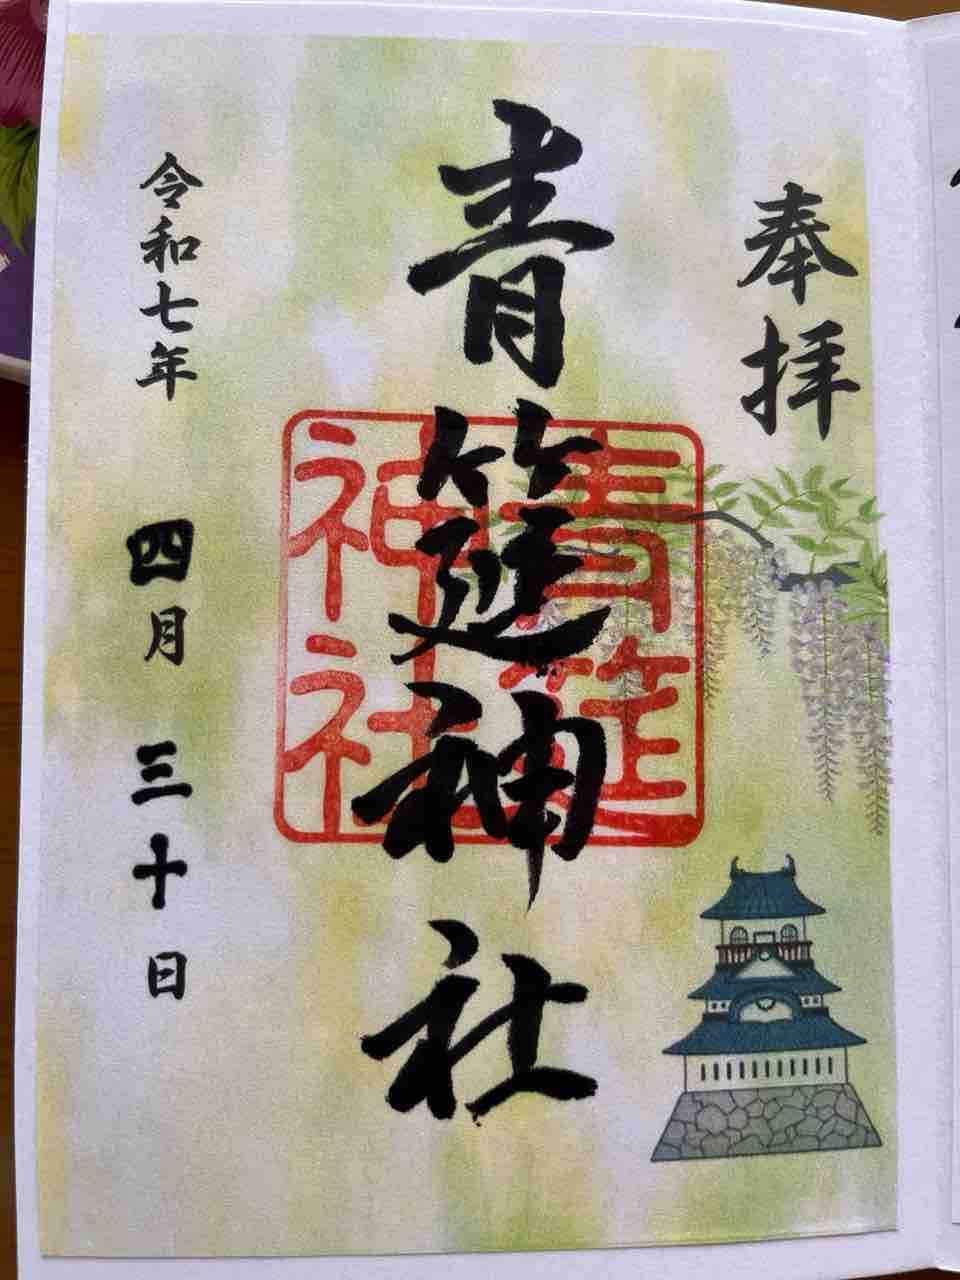 奉拝
青筵神社
青筵
神社
令和七年四月三十日